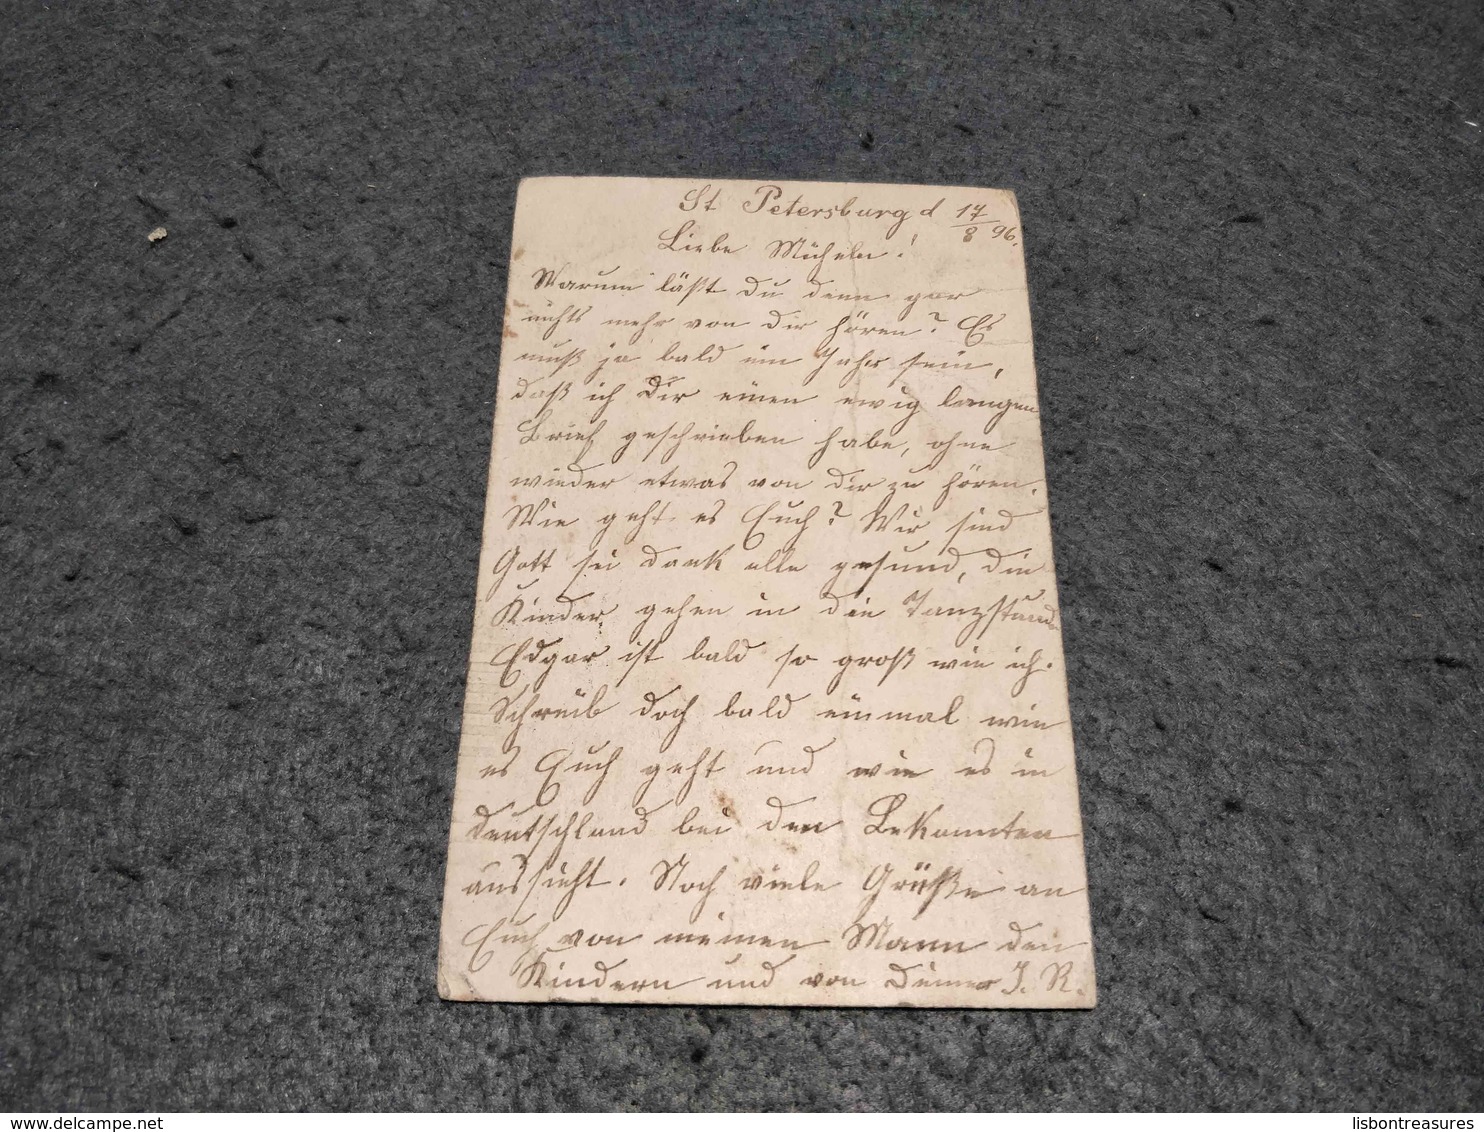 St Petersburg d 17/8 96.
Liebe !
Warum läßt du denn gar
nichts mehr von dir hören? Es
muß ja bald ein Jahr sein,
daß ich Dir einen ewig langen
Brief geschrieben habe, ohne
wieder etwas von dir zu hören.
Wie geht es Euch? Wir sind
Gott sei dank alle gesund, die
Kinder gehen in die Tanzstund
Edgar ist bald so groß wie ich.
Schreib doch bald einmal wie
es Euch geht und wie es in
Deutschland bei den Bekannten
aussieht. Noch viele Grüße an
Euch von meinen Mann den
Kindern und von Deiner J. R.
delcampe.net
lisbontreasures